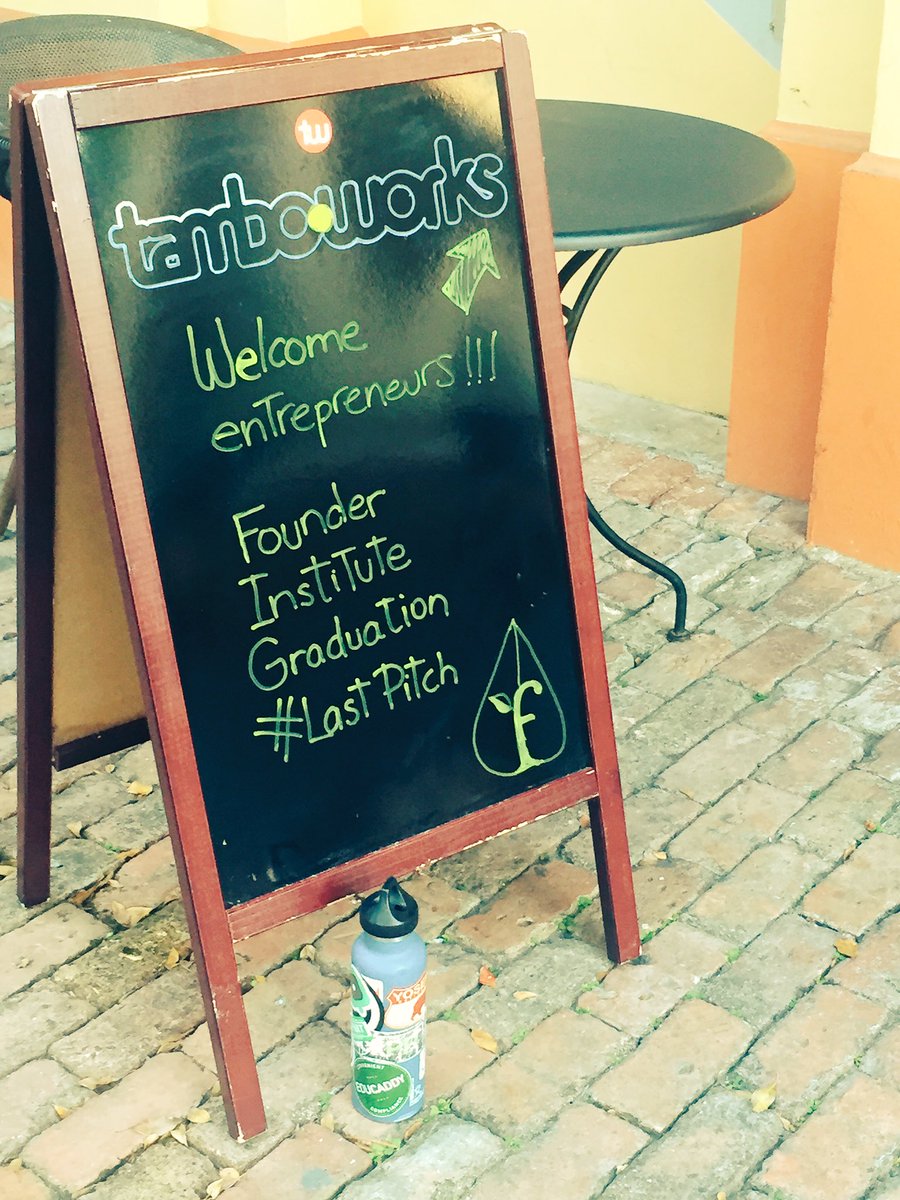 tw
tambo.works
Welcome
entrepreneurs!!!
Founder
Institute
Graduation
#LastPitch
f
EDUCADDY